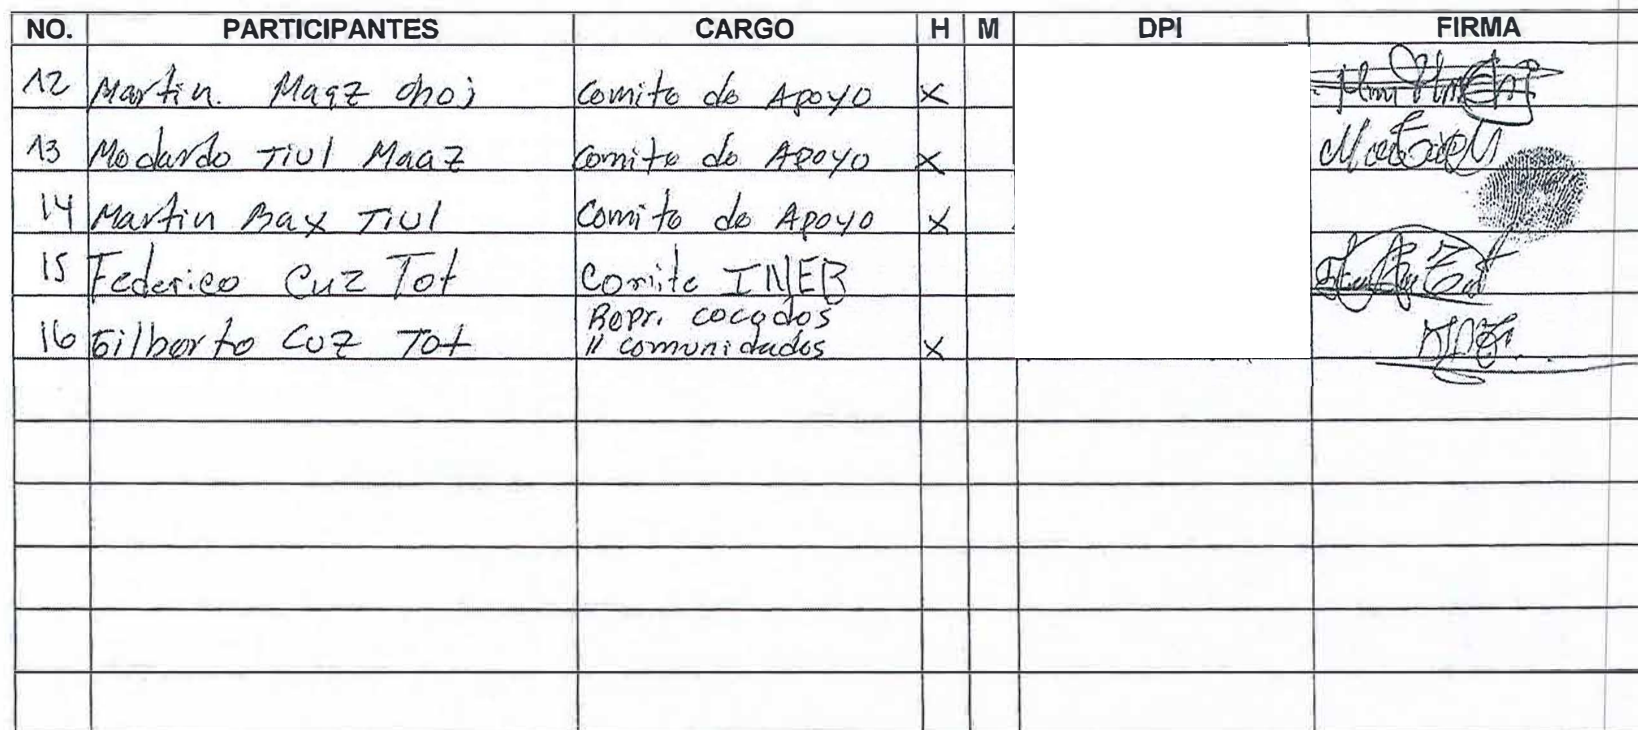 NO. PARTICIPANTES CARGO H M DPI FIRMA
12 Martin. Maaz choj Comite de Apoyo X
13 Medardo Tiul Maaz Comite de Apoyo X
14 Martin Bax Tiul Comite de Apoyo X
15 Federico Cuz Tot Comite INEB
16 Gilberto Cuz Tot Repr. cocodes X
11 comunidades